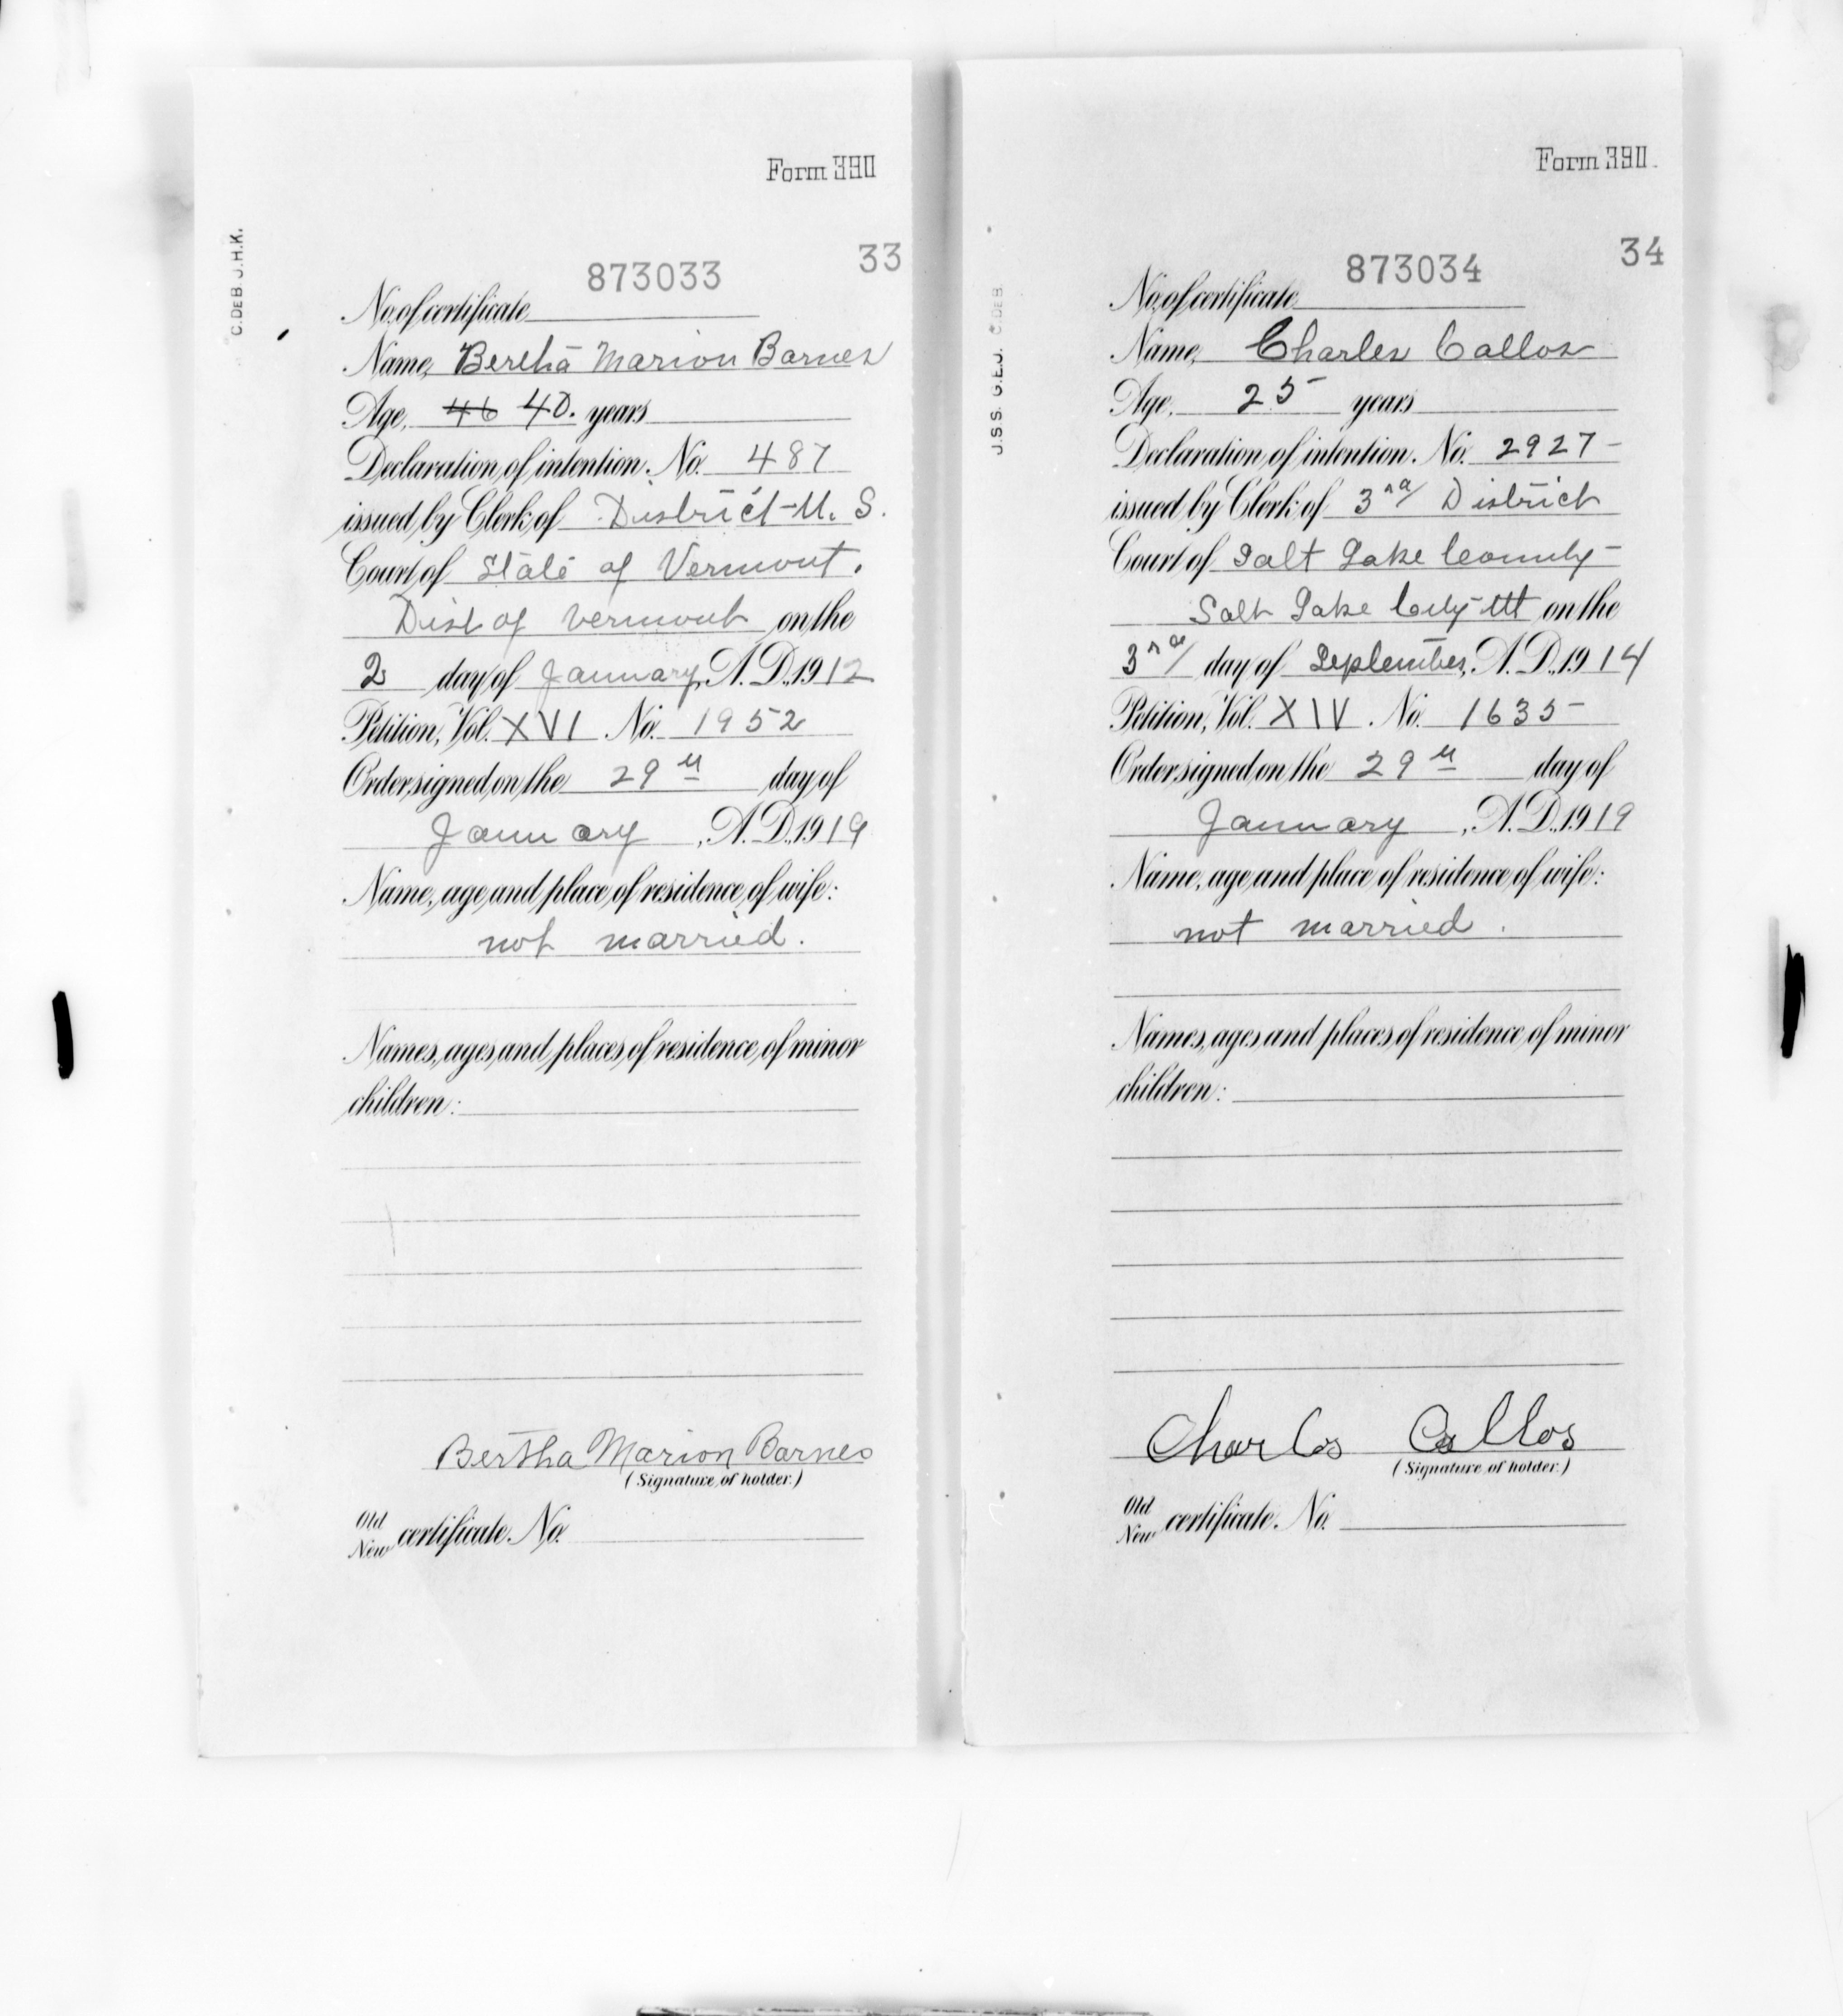 Form 390
C. DEB. J.H.K.
33
873033
No. of certificate
Name, Bertha Marion Barnes
Age, 46 40. years
Declaration of intention. No. 487
issued by Clerk of District U. S.
Court of State of Vermont.
Dist of Vermont on the
2 day of January, A. D. 1912
Petition, Vol. XVI No. 1952
Order signed on the 29th day of
January, A. D. 1919
Name, age and place of residence of wife:
not married.
Names, ages and places of residence of minor
children:
Bertha Marion Barnes
(Signature of holder.)
Old
New certificate. No.
Form 390.
J.S.S. G.E.J. C.DEB.
34
873034
No. of certificate
Name, Charles Callos
Age, 25 years
Declaration of intention. No. 2927
issued by Clerk of 3rd District
Court of Salt Lake County
Salt Lake City Ut on the
3rd day of September, A. D. 1914
Petition, Vol. XIV. No. 1635
Order signed on the 29th day of
January, A. D. 1919
Name, age and place of residence of wife:
not married.
Names, ages and places of residence of minor
children:
Charles Callos
(Signature of holder.)
Old
New certificate. No.